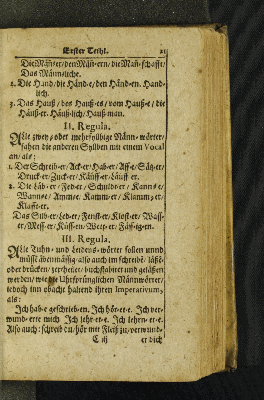 Erster Teihl. 21
Die Mäñ-er/den Mäñ-ern/die Mañ-schafft/
Das Männ-liche.
2. Die Hand/die Händ-e/den Händ-en. Hand-
lich.
3. Das Hauß/des Hauß-es/vom Hauß-e/die
Häuß-er. Häuß-lich/Hauß-man.
II. Regula.
Alle zwey- oder mehrsylbige Männ-wörter/
fahen die anderen Sylben mit einem Vocal
an/als:
1. Der Schreib-er/Ack-er/Hab-er/Aff-e/Sätz-er/
Druck-er/Zuck-er/Käuff-er/Läuff-er.
2. Die Läb-er/Fed-er/Schuld-er/Kann-e/
Wann-e/Amm-e/Kamm-er/Klamm-er/
Klafft-er.
Das Silb-er/Led-er/Fenst-er/Klost-er/Wass-
er/Mess-er/Küss-en/Wett-er/
III. Regula.
Alle Tuhn- und Leidens-wörter sollen unnd
müssē ebenmässig/also auch im schreibē/
oder drücken/zertheilet/buchstabiret und geläsen
werden/wie die Uhrsprünglichen Männwörter/
jedoch inn obacht haltend ihren Imperativum,
als:
Ich hab-e geschrieb-en. Ich hör-et-e. Ich ver-
wund-erte mich. Ich lehr-et-e. Ich lern-et-e.
Also auch: schreib du/hör mit Fleiß zu/verwund-
C iij er dich